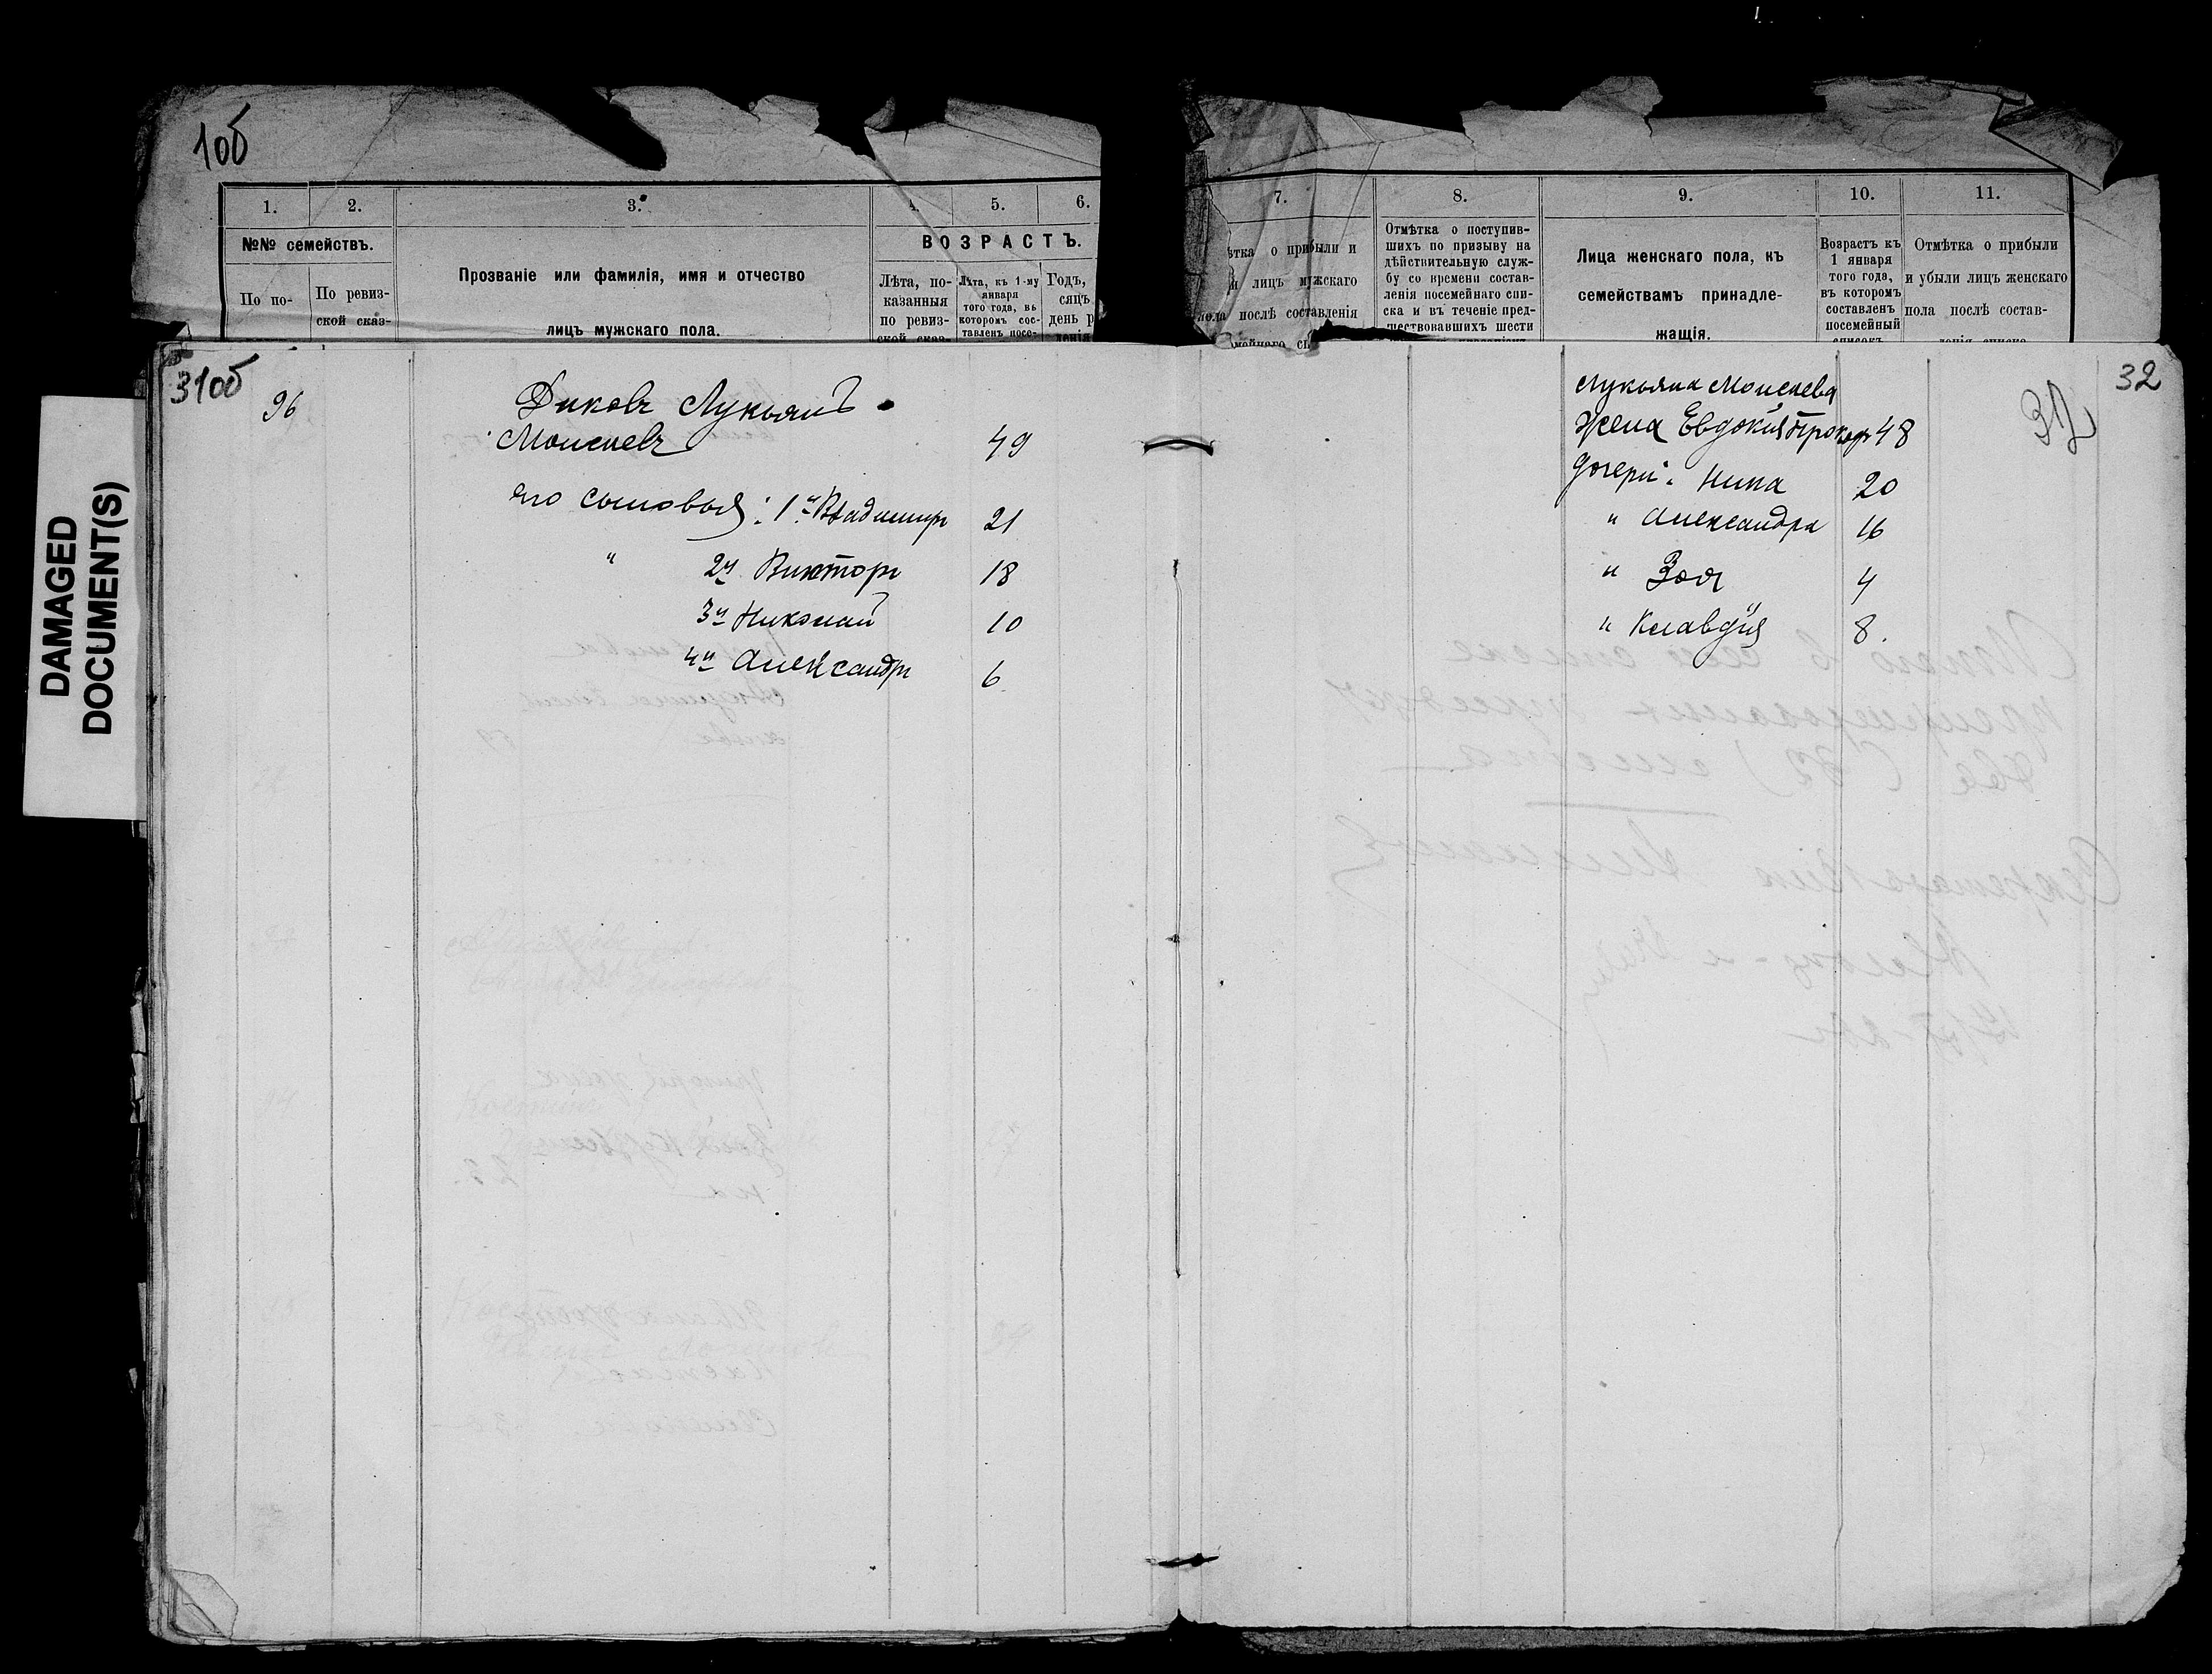 1об
1.
2.
3.
4.
5.
6.
№№ семействъ.
ВОЗРАСТЪ.
По по-
По ревиз-
ской сказ-
Прозваніе или фамилія, имя и отчество
лицъ мужскаго пола.
Лѣта, по-
казанныя
по ревиз-
ской сказ-
Лѣта, къ 1-му
января
того года, въ
которомъ сос-
тавленъ посе-
Годъ,
сяцъ
день р
денія
7.
8.
9.
10.
11.
ѣтка о прибыли и
и лицъ мужскаго
пола послѣ составленія
Отмѣтка о поступив-
шихъ по призыву на
дѣйствительную служ-
бу со времени состав-
ленія посемейнаго спи-
ска и въ теченіе пред-
шествовавшихъ шести
Лица женскаго пола, къ
семействамъ принадле-
жащія.
Возрастъ къ
1 января
того года,
въ которомъ
составленъ
посемейный
списокъ
Отмѣтка о прибыли
и убыли лицъ женскаго
пола послѣ состав-
ленія списка
DAMAGED
DOCUMENT(S)
31об
96
Диковъ Лукьянъ
Моисеевъ 49
его сыновья: 1й Владимиръ 21
" 2й Викторъ 18
3й Николай 10
4й Александръ 6
32
32
Лукьяна Моисеева
жена Евдокія Прокоф 48
дочери: Нина 20
" Александра 16
" Зоя 4
" Клавдія 8.